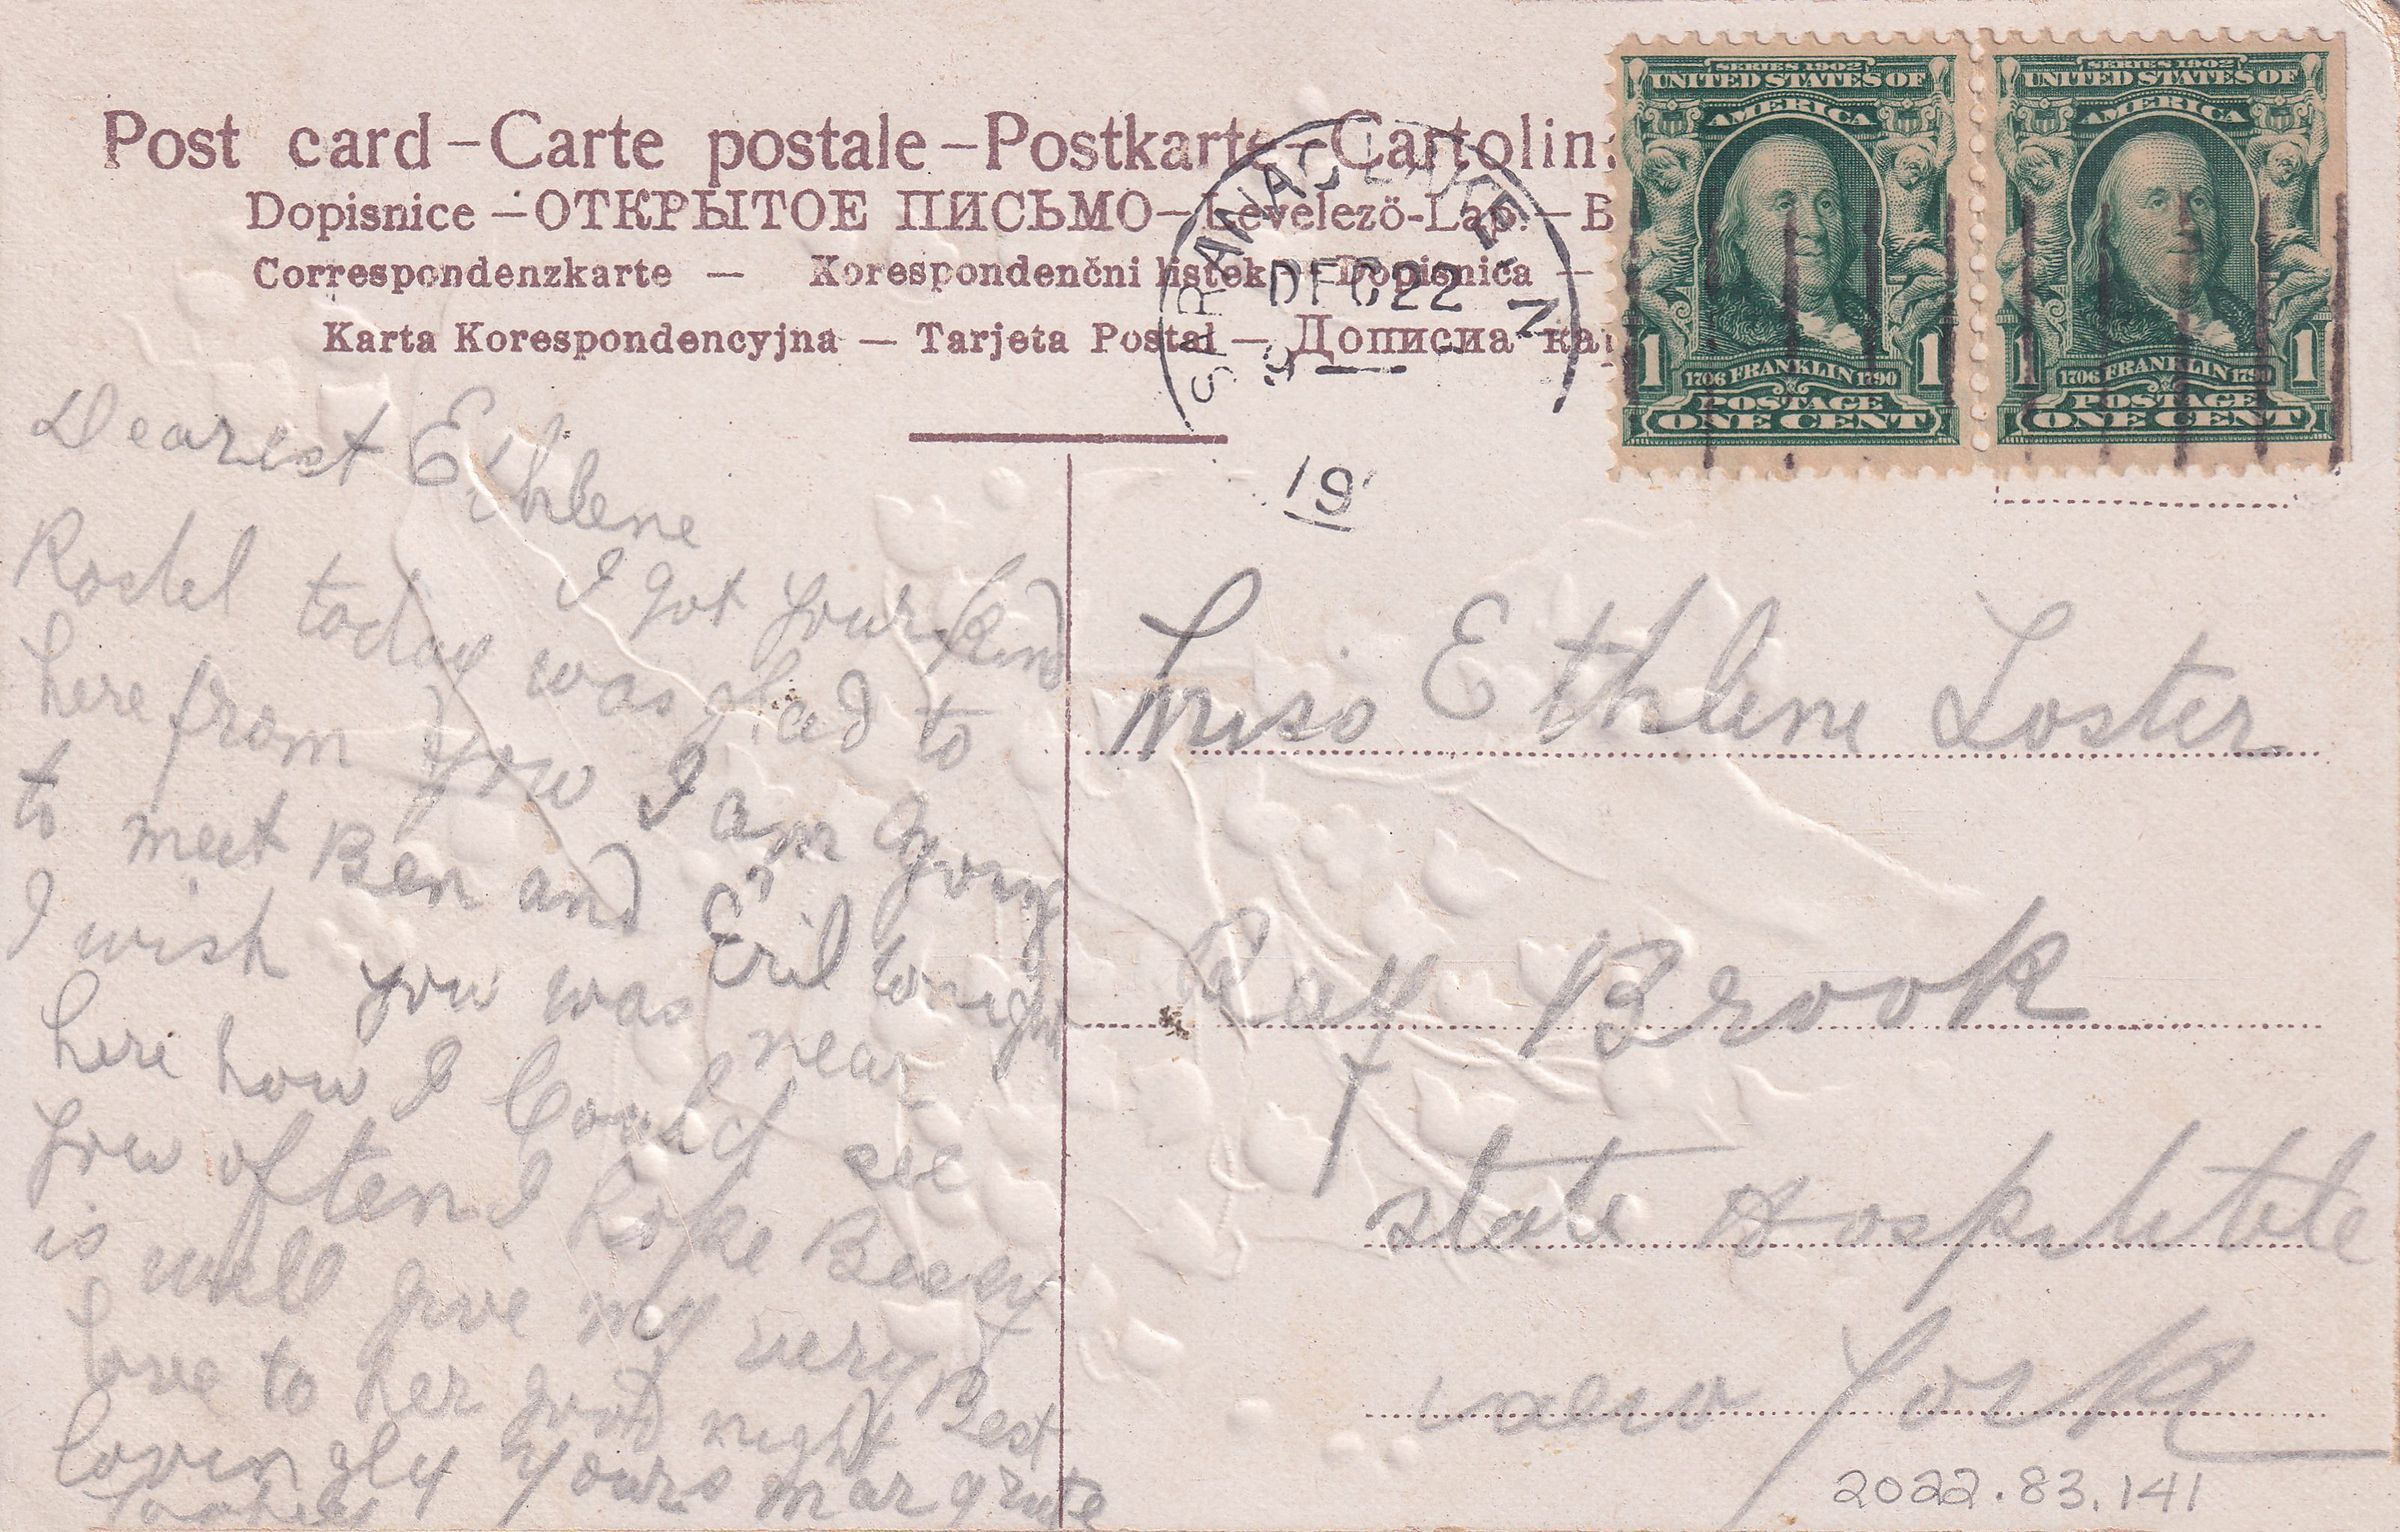 Post card – Carte postale – Postkarte – Cartolin
Dopisnice – ОТКРЫТОЕ ПИСЬМО – Levelezö-Lap. – Б
Correspondenzkarte – Korespondenčni listek – Dopisnica –
Karta Korespondencyjna – Tarjeta Postal – Дописна
SARANAC LAKE N
DEC 22
19
SERIES 1902
UNITED STATES OF
AMERICA
1 1706 FRANKLIN 1790 1
POSTAGE
ONE CENT
SERIES 1902
UNITED STATES OF
AMERICA
1706 FRANKLIN 1790 1
POSTAGE
ONE CENT
Dearest Ethlene
I got your kind
Postel today was glad to
here from you I am going
to meet Ben and Eril tonight
I wish you was near
here how I Could see
you often I hope Bessy
is well give my very Best
love to her good night
lovingly yours margrute
Miss Ethlene Loster
Ray Brook
State Hospitule
new York
2022.83.141